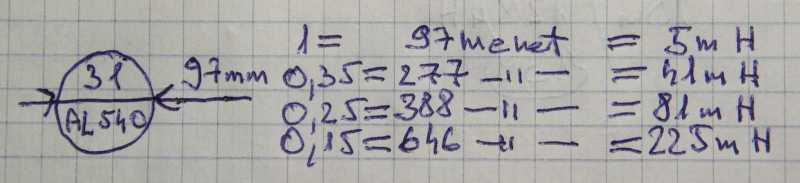 31
AL540
97mm
1 = 97 menet = 5m H
0,35 = 277 —"— = 41m H
0,25 = 388 —"— = 81m H
0,15 = 646 —"— = 225m H